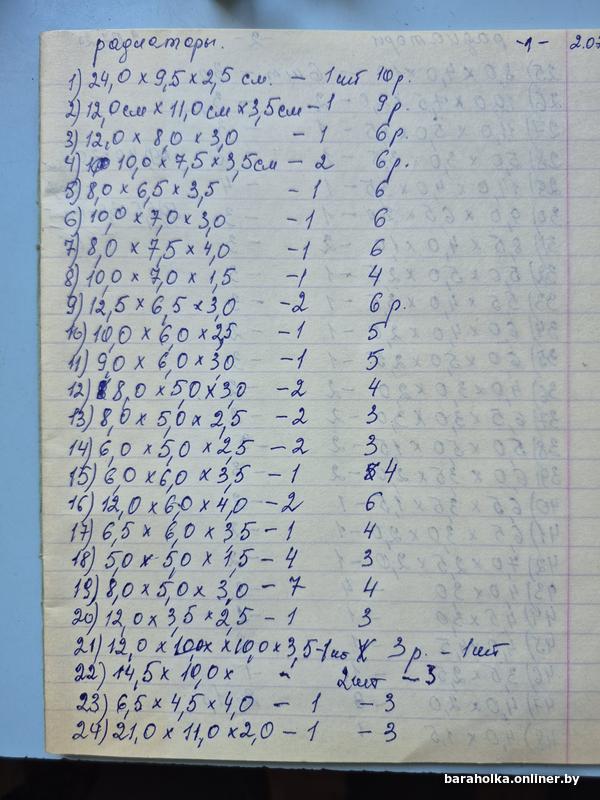 радиаторы. -1- 2.02
1) 24,0 x 9,5 x 2,5 см. - 1 шт 10р.
2) 12,0см x 11,0см x 3,5см - 1 9р.
3) 12,0 x 8,0 x 3,0 - 1 6р.
4) 10,0 x 7,5 x 3,5см - 2 6р.
5) 8,0 x 6,5 x 3,5 - 1 6
6) 10,0 x 7,0 x 3,0 - 1 6
7) 8,0 x 7,5 x 4,0 - 1 6
8) 10,0 x 7,0 x 1,5 - 1 4
9) 12,5 x 6,5 x 3,0 - 2 6р.
10) 10,0 x 6,0 x 2,5 - 1 5
11) 9,0 x 6,0 x 3,0 - 1 5
12) 8,0 x 5,0 x 3,0 - 2 4
13) 8,0 x 5,0 x 2,5 - 2 3
14) 6,0 x 5,0 x 2,5 - 2 3
15) 6,0 x 6,0 x 3,5 - 1 4
16) 12,0 x 6,0 x 4,0 - 2 6
17) 6,5 x 6,0 x 3,5 - 1 4
18) 5,0 x 5,0 x 1,5 - 4 3
19) 8,0 x 5,0 x 3,0 - 7 4
20) 12,0 x 3,5 x 2,5 - 1 3
21) 12,0 x 10,0 x 3,5 3р. - 1шт
22) 14,5 x 10,0 x " 2шт - 3
23) 6,5 x 4,5 x 4,0 - 1 - 3
24) 21,0 x 11,0 x 2,0 - 1 - 3
baraholka.onliner.by